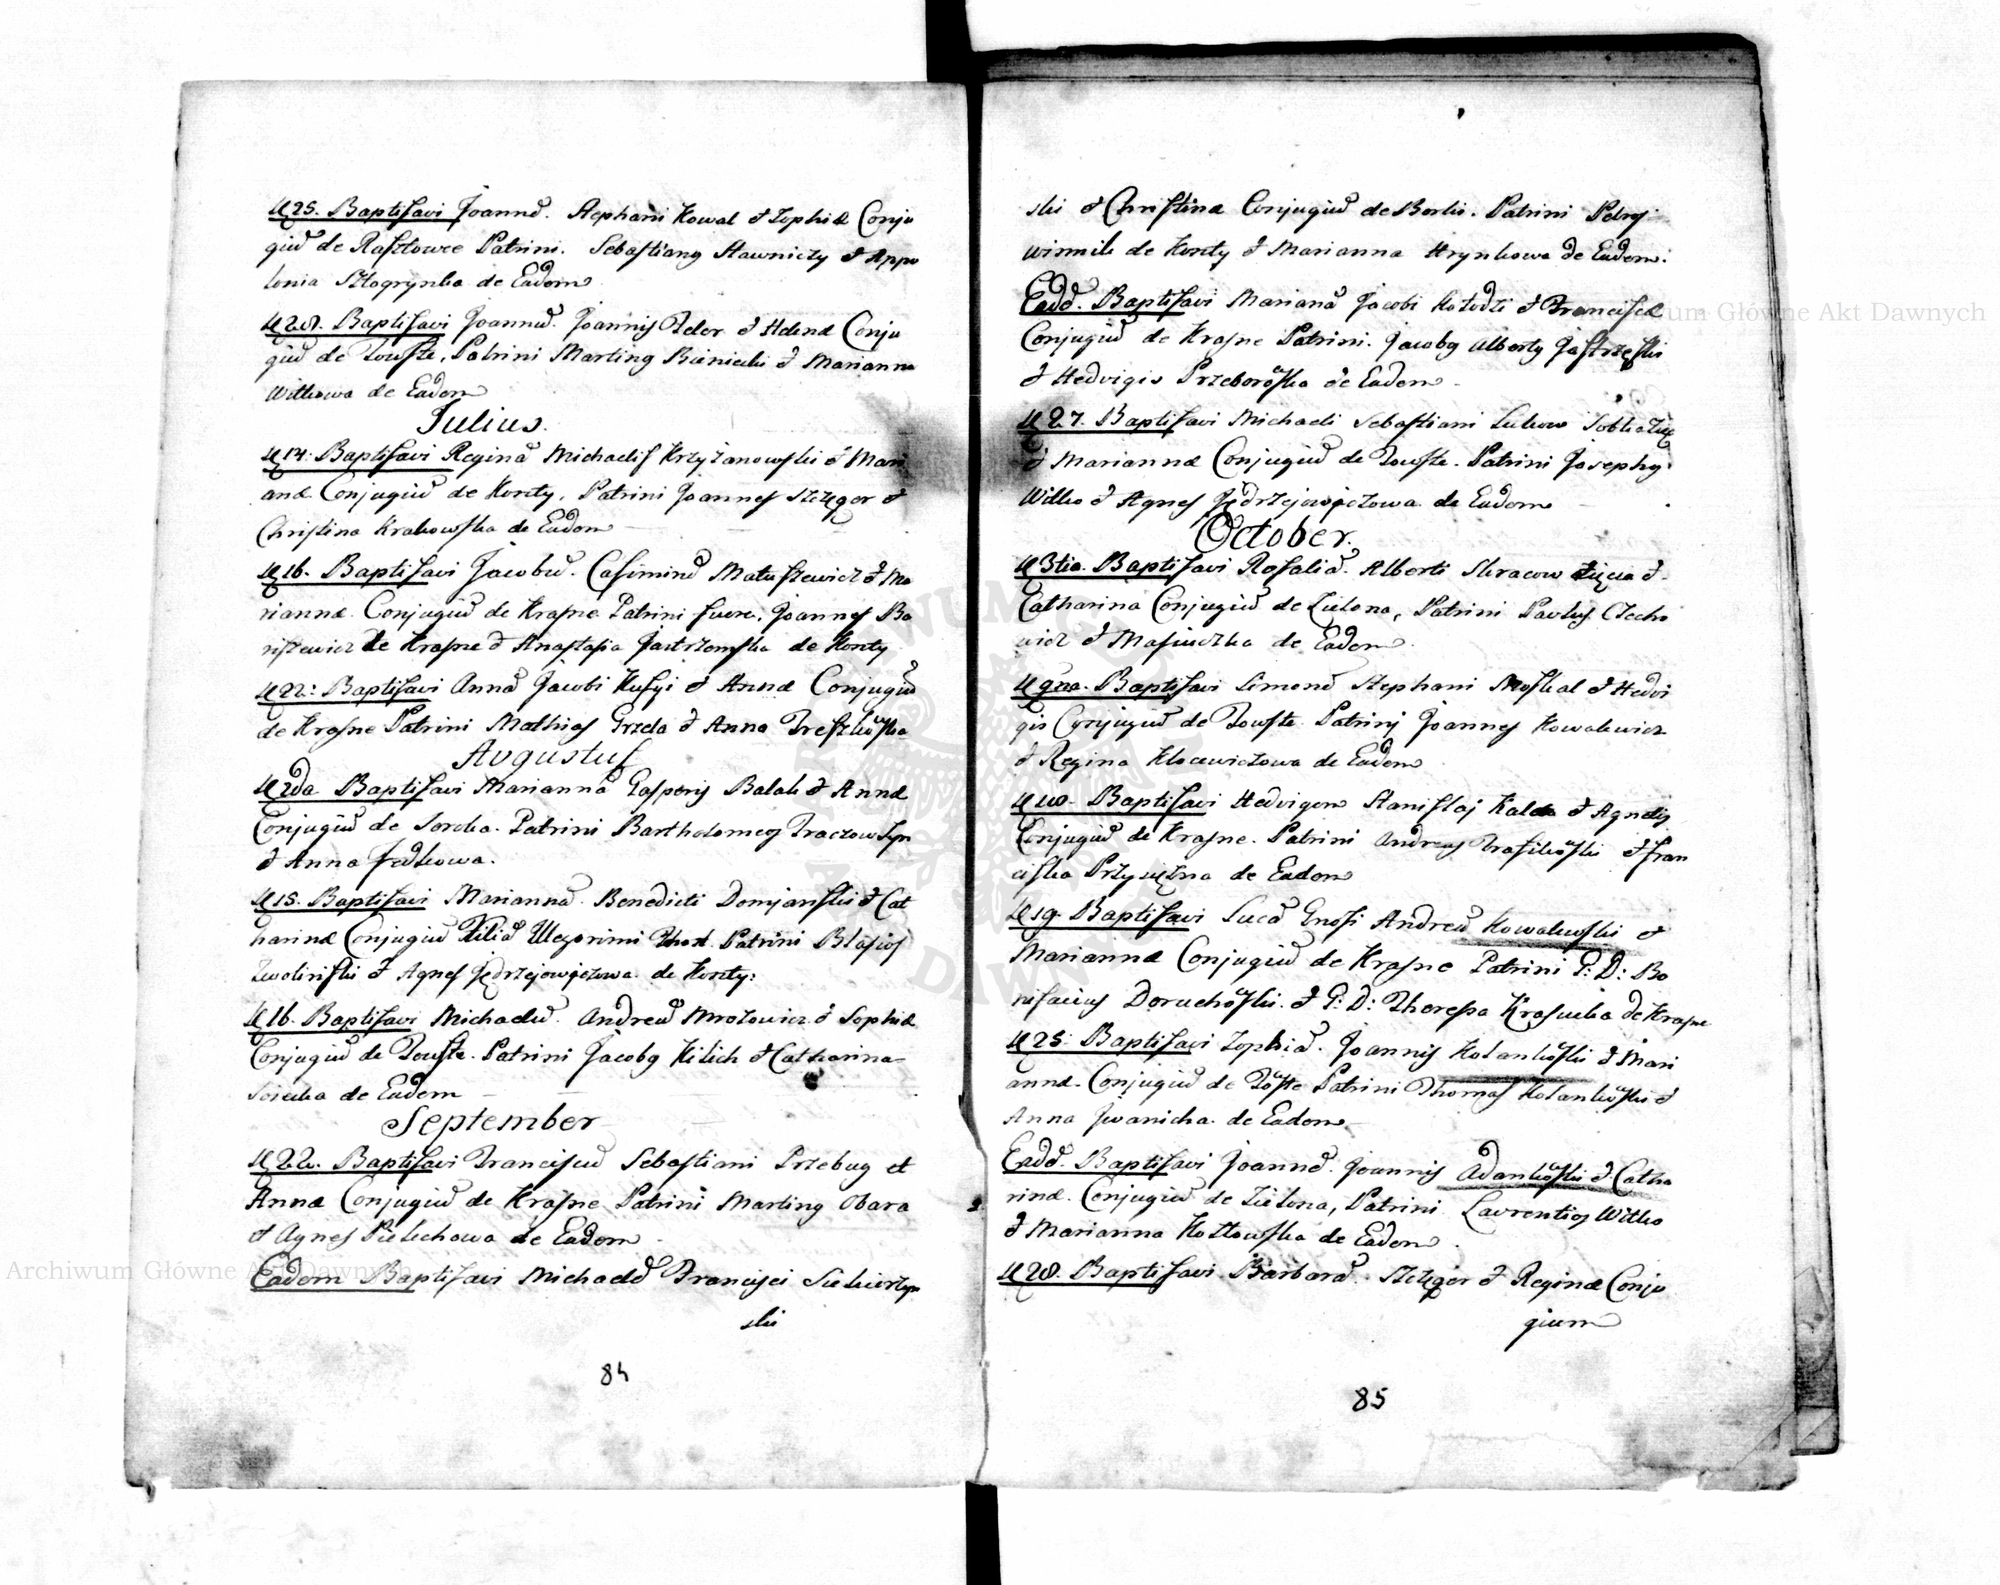 25. Baptisavi Joannē. Stephani Kowal & Zophiæ Conju
giū de Rasztowce Patrini. Sebastiang Stawniczy & Appo
lonia de Eadem
28. Baptisavi Joannē. Joannis & Helenæ Conju
giū de Touste, Patrini Marting Bieniecki & Marianna
Witkowa de Eadem
Julius.
14. Baptisavi Reginā Michaelis Krzyżanowski & Mari
anæ Conjugiū de Konty, Patrini Joannes & 
Christina Krakowska de Eadem
16. Baptisavi Jacobū. Casimirū Matuszewicz & Ma
riannæ Conjugiū de Krasne Patrini fuere, Joannes Bo
niszewicz de Krasne & Anastasia Jastrzemska de Konty
22: Baptisavi Annā Jacobi & Annæ Conjugiū
de Krasne Patrini Mathias Grzela & Anna
Avgustus
2da Baptisavi Mariannā Gasperis Balak & Annæ
Conjugiū de Soroka. Patrini Bartholomeg
& Anna Fedkowa.
15. Baptisavi Mariannā. Benedicti Domjanski & Cat
harinæ Conjugiū Patrini Blasios
Zwolinski & Agnes Jędrzejowiczowa de Konty:
16. Baptisavi Michaelē. Andreē Mrozowicz & Sophiæ
Conjugiū de Touste. Patrini Jacobg Kilich & Catharina
de Eadem
September
22. Baptisavi Franciscū Sebastiani Przebug et
Annæ Conjugiū de Krasne Patrini Marting Obara
& Agnes Pielechowa de Eadem
Eadem Baptisavi Michaelē Francisci
ski
84
ski & Christinæ Conjugiū de Borki. Patrini
de Konty & Marianna Hrynkowa de Eadem.
Eadē. Baptisavi Marianā Jacobi & Franciscæ
Conjugiū de Krasne Patrini. Jacobg Albertg Jastrzęski
& Hedvigis Przeborōska de Eadem
27. Baptisavi Michaeli Sebastiani
& Mariannæ Conjugiū de Touste. Patrini Josephg
Witko & Agnes Jędrzejowiczowa de Eadem
October.
3tia. Baptisavi Rosaliā. Alberti &
Catharina Conjugiū de Zielona, Patrini Pavlus Czecho
wicz & de Eadem
9na. Baptisavi Simonē Stephani Moskal & Hedvi
gis Conjugiū de Touste. Patrini Joannes Kowalewicz
& Regina de Eadem
18. Baptisavi Hedvigem Stanislaj & Agnetis
Conjugiū de Krasne. Patrini Andreas & Fran
ciska Przysiężna de Eadem
19. Baptisavi Lucā Gnosi Andreē Kowalewski &
Mariannæ Conjugiū de Krasne Patrini G: D: Bo
nifacius Doruchōski. & G: D: Theressa Krasucka de Krasne
25: Baptisavi Zophiā. Joannis Kolankōski & Mari
annæ Conjugiū de Tōste Patrini Thomas Kolankōski &
Anna Jwanicha. de Eadem
Eadē. Baptisavi Joannē. Joannis Adamkōski & Catha
rinæ. Conjugiū de Zielona, Patrini Lavrentios Witko
& Marianna Kozłowska de Eadem
28. Baptisavi Barbarā. & Reginæ Conju
gium
85
Archiwum Główne Akt Dawnych